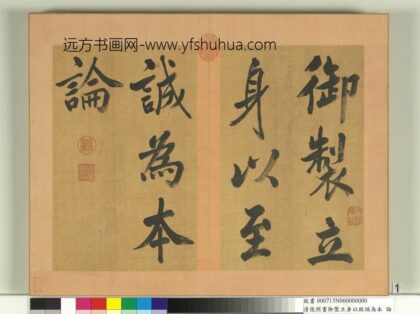 远方书画网-www.yfshuhua.com
御製立
身以至
誠為本
論
1
故書 000715N000000000
清張照書御製立身以致誠為本 論